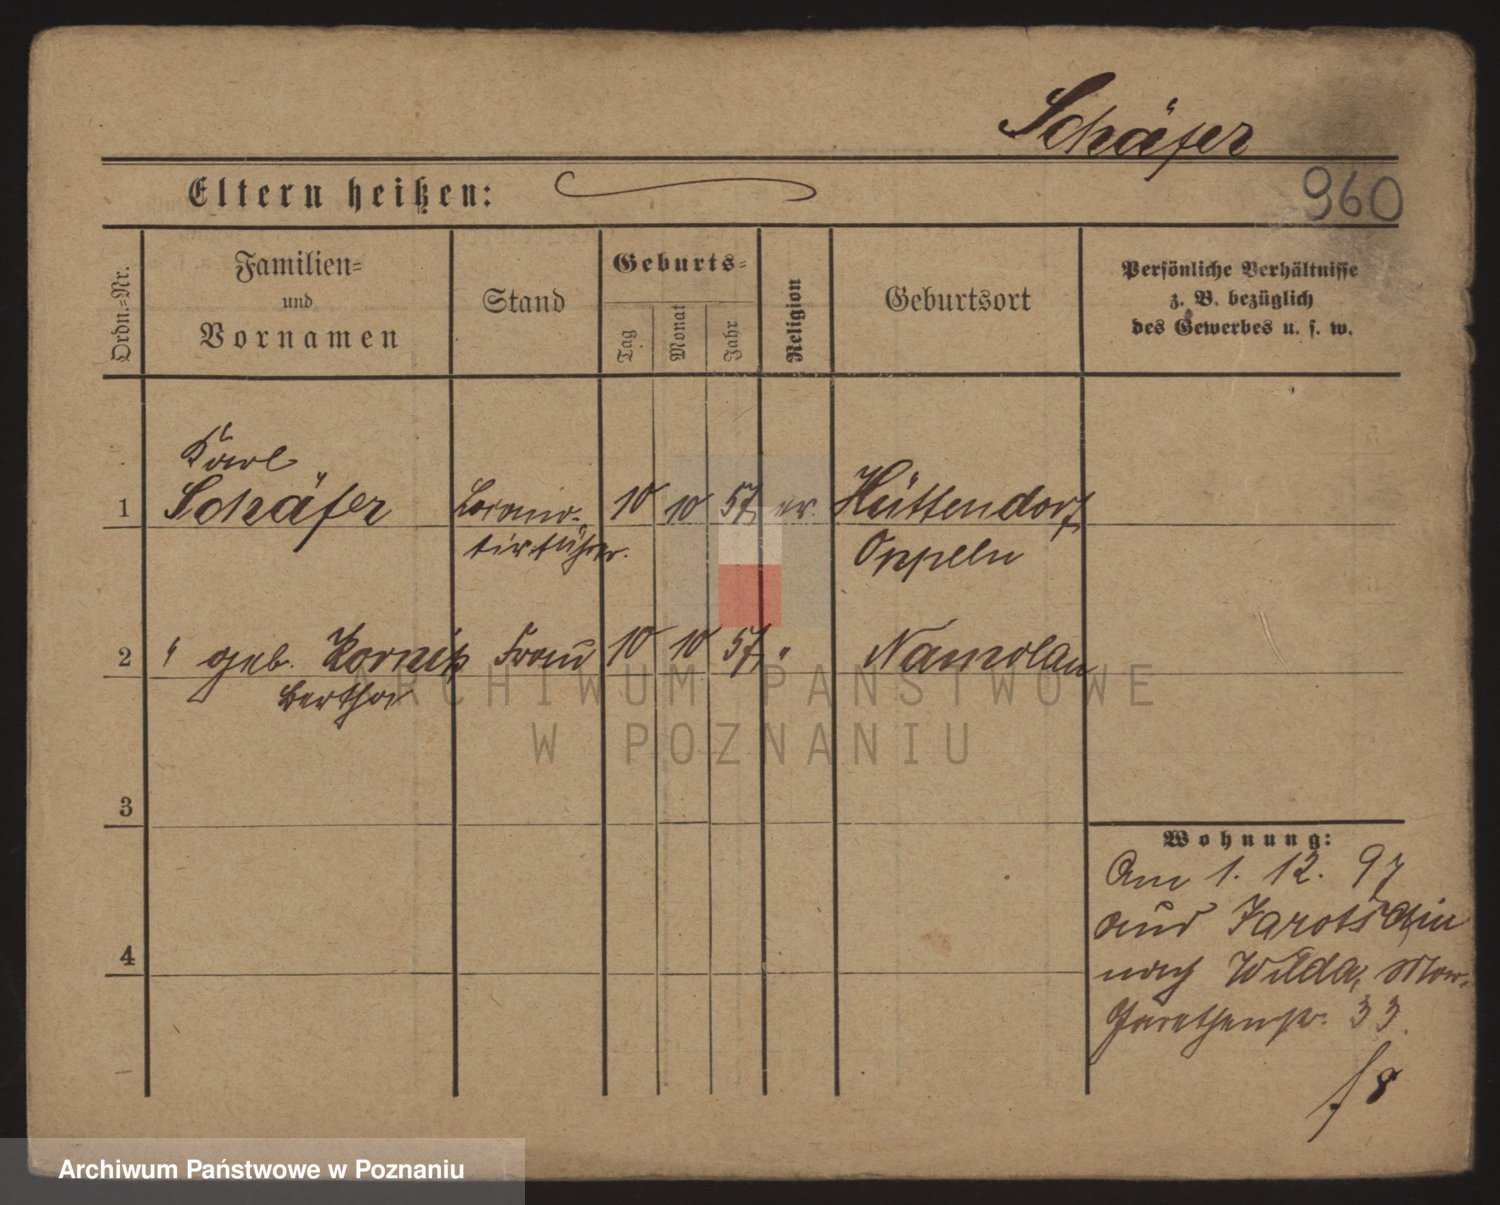 Schäfer
Eltern heißen:
960
Ordn.-Nr.
Familien-
und
Vornamen
Stand
Geburts-
Tag
Monat
Jahr
Religion
Geburtsort
Persönliche Verhältnisse
z. B. bezüglich
des Gewerbes u. s. w.
Karl
1 Schäfer Locomo- 10 10 57 ev. Hüttendorf
tivführer. Oppeln
2 " geb. Kornitz Frau 10 10 57 " Namslau
Bertha
ARCHIWUM PAŃSTWOWE
W POZNANIU
3
Wohnung:
Am 1. 12. 97
aus Jarotschin
nach Wilda, Mar-
garethenstr. 33.
4
f 8
Archiwum Państwowe w Poznaniu